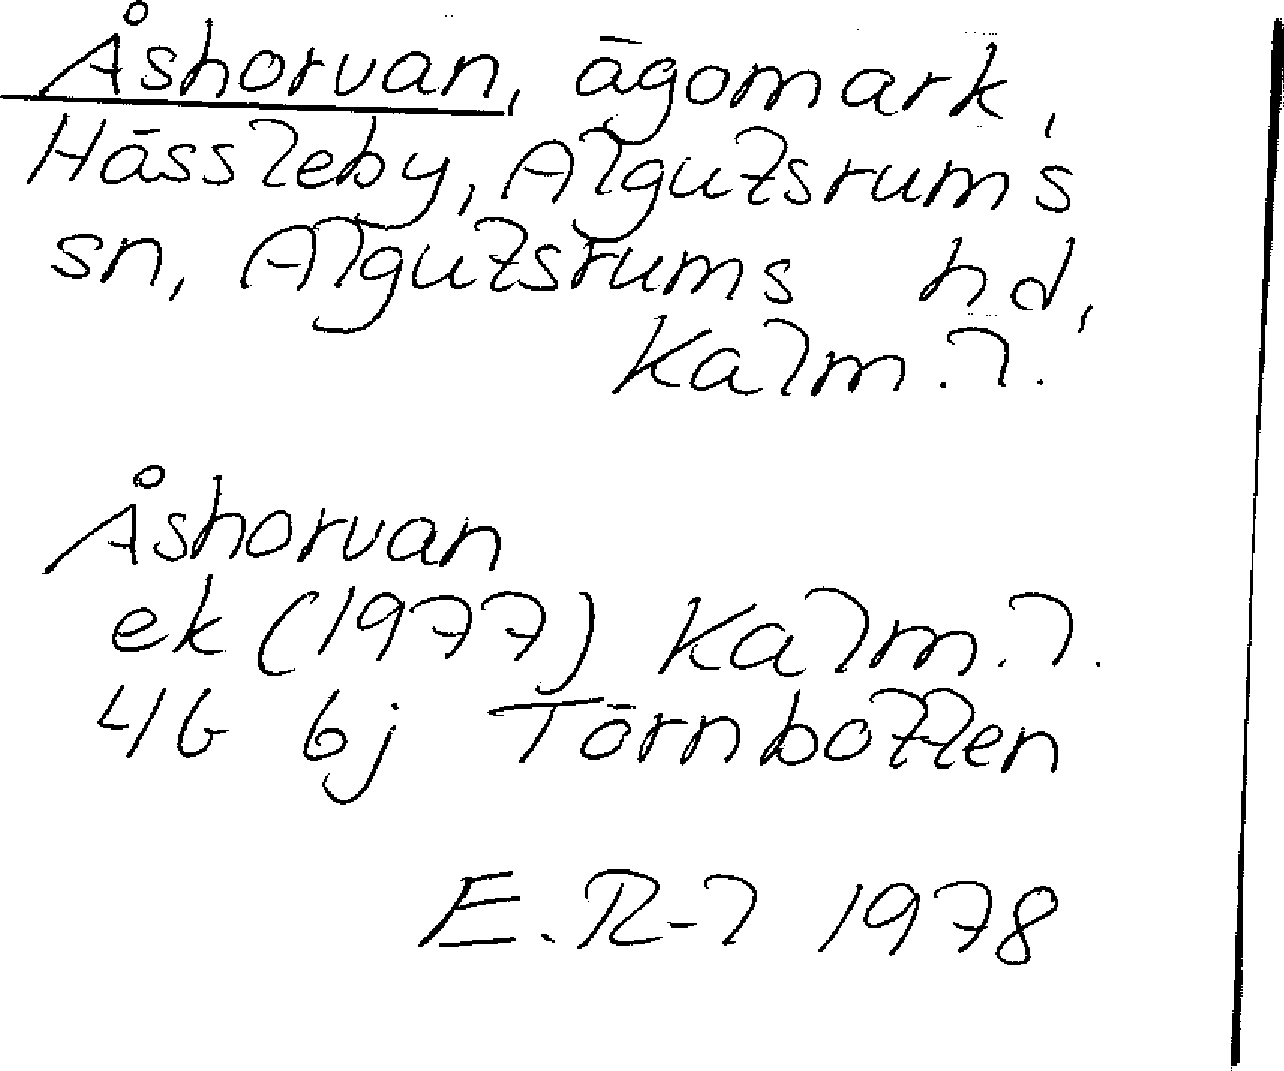 Åshorvan, ägomark,
Hässleby, Algutsrums
sn, Algutsrums hd,
Kalm.l.
Åshorvan
ek (1977) Kalm.l.
4G 6j Törnbotten
E.R-l 1978